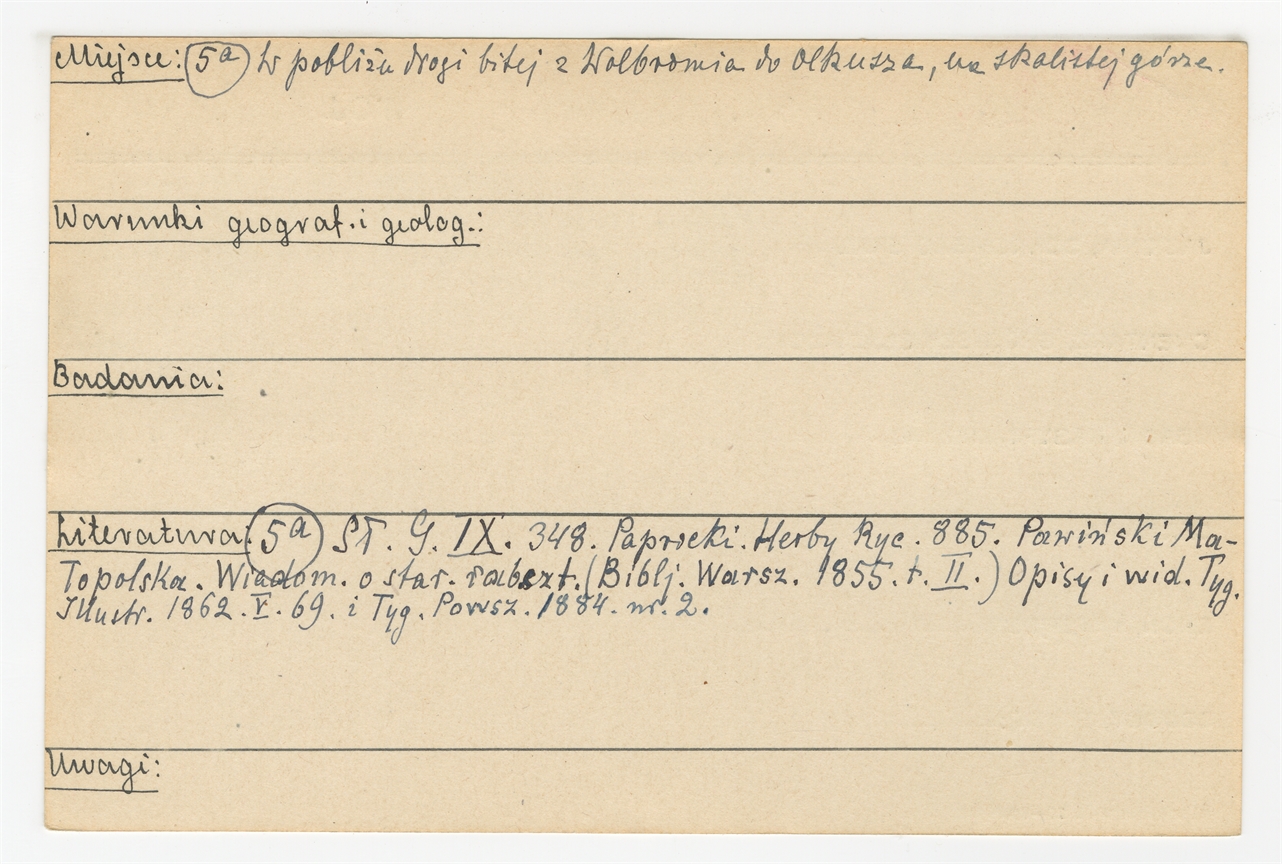 Miejsce: 5a W pobliżu drogi bitej z Wolbromia do Olkusza, na skalistej górze.
Warunki geograf. i geolog.:
Badania:
Literatura: 5a Sł. G. IX. 348. Paprocki. Herby Ryc. 885. Pawiński Ma-
łopolska. Wiadom. o star. rabszt. (Biblj. Warsz. 1855. t. II.) Opisy i wid. Tyg.
Illustr. 1862. V. 69. i Tyg. Powsz. 1884. nr. 2.
Uwagi: